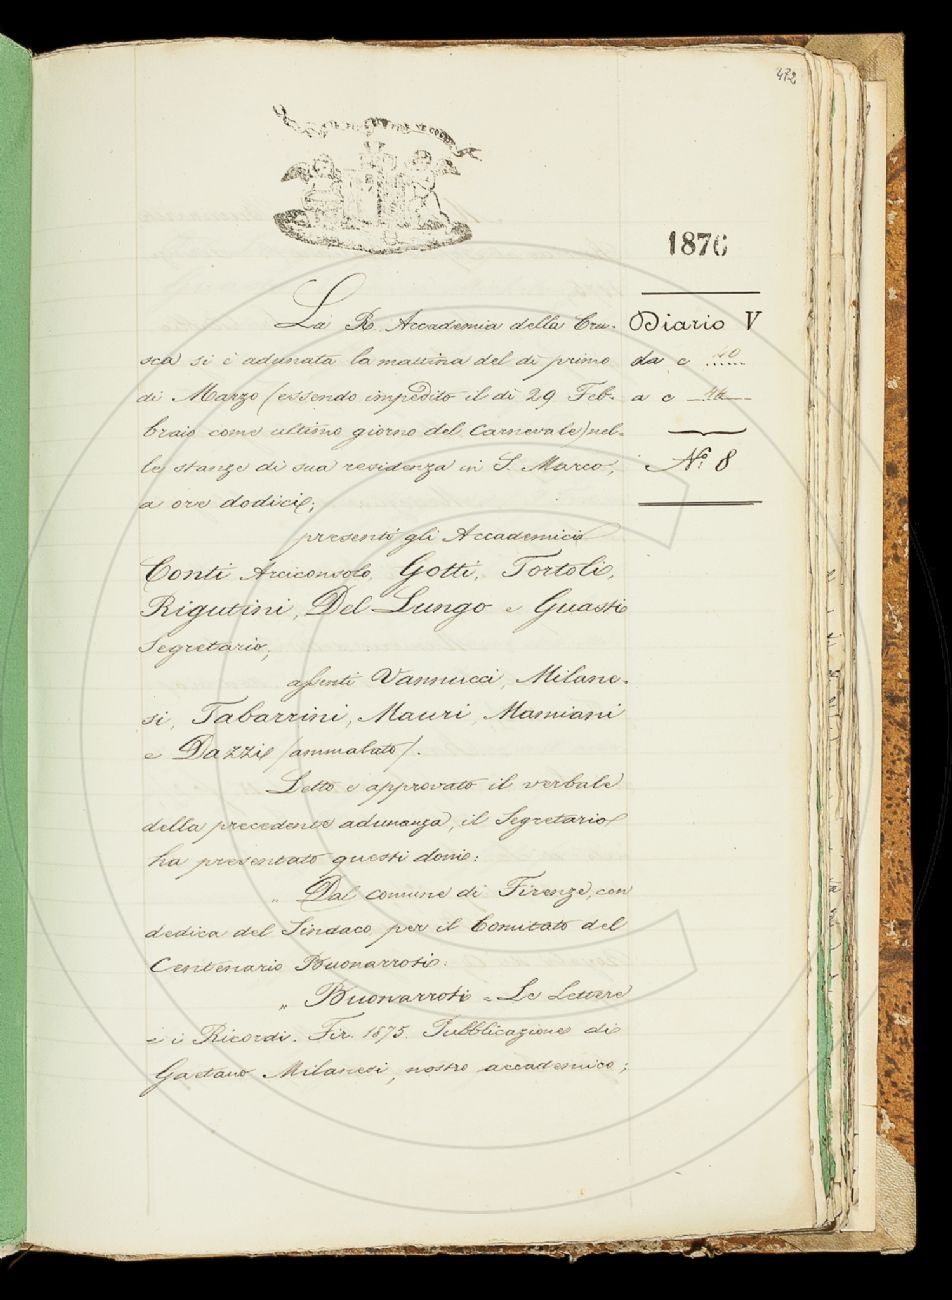 472
1876
Diario V
da c 40
a c 44
Nº 8
La R. Accademia della Cru-
sca si è adunata la mattina del dì primo
di Marzo (essendo impedito il dì 29 Feb-
braio come ultimo giorno del Carnevale) nel-
le stanze di sua residenza in S. Marco,
a ore dodici;
presenti gli Accademici
Conti Arciconsolo, Gotti, Tortoli,
Rigutini, Del Lungo e Guasti
Segretario;
assenti Vannucci, Milane-
si, Tabarrini, Mauri, Mamiani
e Dazzi (ammalato).
Letto e approvato il verbale
della precedente adunanza, il Segretario
ha presentato questi doni:
„ Dal comune di Firenze, con
dedica del Sindaco per il Comitato del
Centenario Buonarroti:
„ Buonarroti - Le Lettere
e i Ricordi. Fir. 1875. Pubblicazione di
Gaetano Milanesi, nostro accademico;